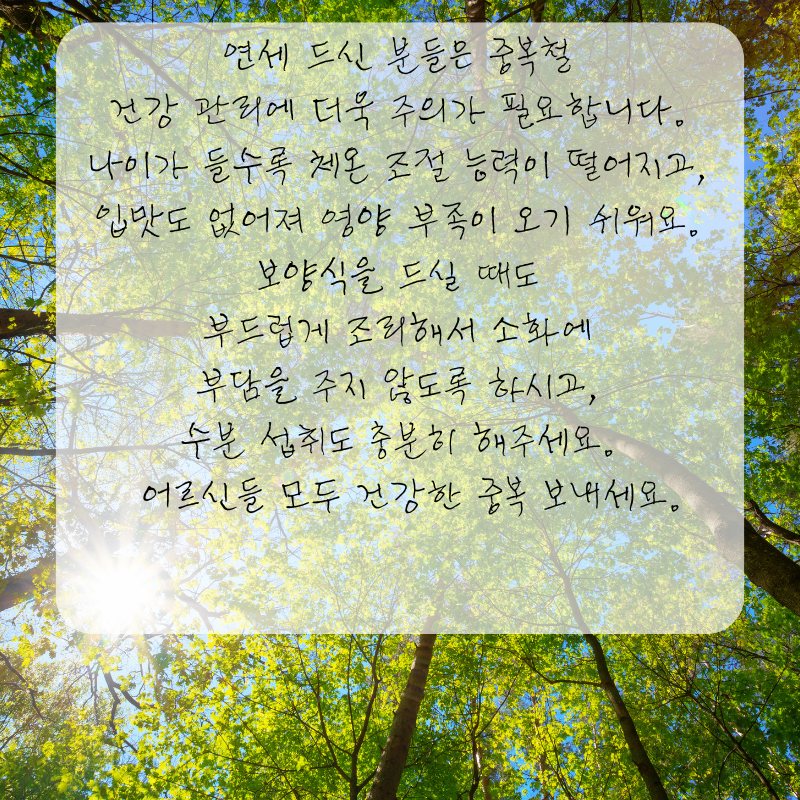 연세 드신 분들은 중복철
건강 관리에 더욱 주의가 필요합니다.
나이가 들수록 체온 조절 능력이 떨어지고,
입맛도 없어져 영양 부족이 오기 쉬워요.
보양식을 드실 때도
부드럽게 조리해서 소화에
부담을 주지 않도록 하시고,
수분 섭취도 충분히 해주세요.
어르신들 모두 건강한 중복 보내세요.